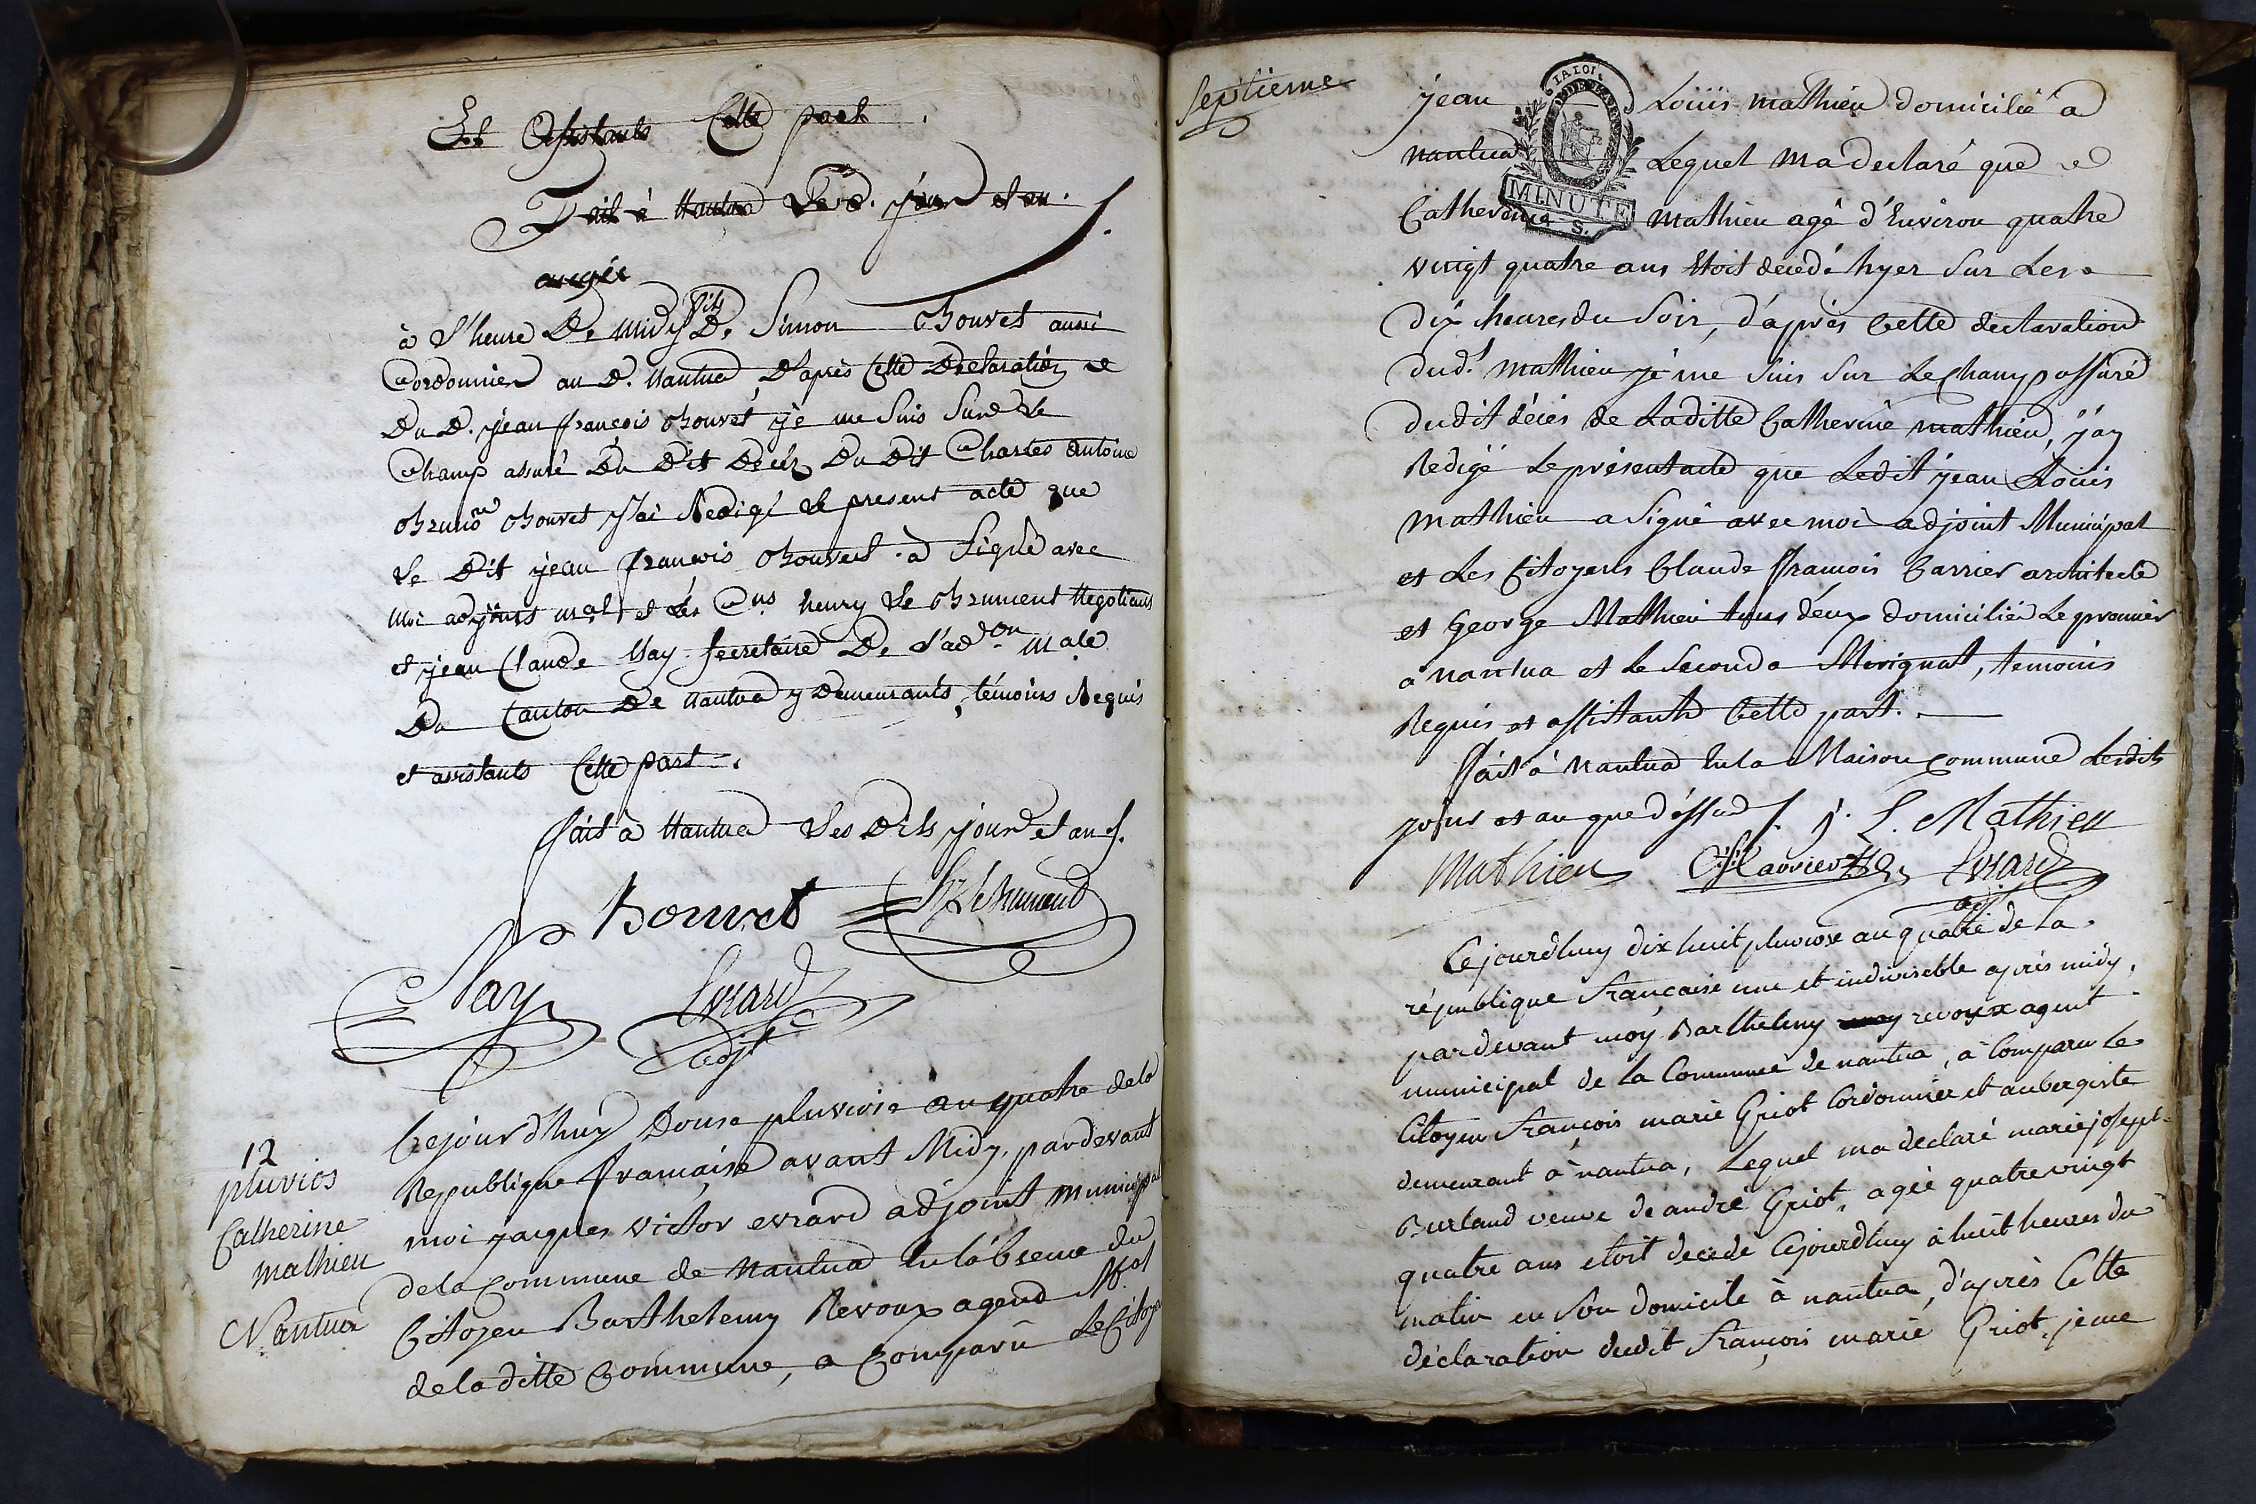 Et assistants Cette part.
Fait à Nantua Led. jour et an.
à l'heure De midy fils De Simon Bouvet aussi
Cordonnier au D. Nantua, D'après Cette Declaration
Du D. jean françois Bouvet je me suis sur Le
Champ assuré Du Dit Décéz Du Dit Charles antoine
Bouvet j'ai Redigé Le present acte que
Le Dit jean françois Bouvet a Signé avec
moi adjoint mal et Les Cns henry Le Brument Negotiant
et jean Claude Nay secretaire De l'adon male
Du Canton De Nantua y Demeurants, témoins Requis
et assistants Cette part.
fait à Nantua Les Dits jour et an.
Bouvet
Nay Evrard
adjt
12
pluvios
Catherine
mathieu
Nantua
Cejourd'huy Douse pluviose an quatre dela
Republique française avant Midy, pardevant
moi jacques victor evrard adjoint municipal
dela commune de Nantua En l'absence du
Citoyen Barthelemy Revoux agend Mal
dela ditte Commune, a Comparu Le Citoyen
Septieme
LA LOI
MINUTE
jean Loüis mathieu domicilié a
nantua Lequel ma declaré que
Catherine mathieu agé d'Environ quatre
vingt quatre ans Etoit decedé hyer sur Les
dix heures du Soir, d'après Cette declaration
dud.t mathieu je me suis sur Lechamp assuré
dudit déces de Laditte Catherine mathieu, j'ay
Redigé Le présent acte que Ledit jean Loüis
mathieu a signé avec moi adjoint Municipal
et Les Citoyens Claude François Carrier architecte
et George Mathieu tous deux domiciliés Le premier
a nantua et Le Second a Merignat, temoins
Requis et assistants Cette part.
fait à Nantua En la Maison commune Lesdits
jour et an que dessus. j. L. Mathieu
Mathieu Evrard
adjt
Cejourdhuy dix huit pluviose an quatre de la
république française une et indivisible après midy,
pardevant moy Barthelemy revoux agent
municipal de la Commune de nantua, à Comparu Le
Citoyen françois marie Griot Cordonnier et aubergiste
demeurant à nantua, Lequel ma declaré marie joseph
Burland veuve de andré Griot, agée quatre vingt
quatre ans etoit decedé Cejourdhuy à huit heures du
matin en Son domicile à nantua, d'après Cette
déclaration dudit françois marie Griot, je me